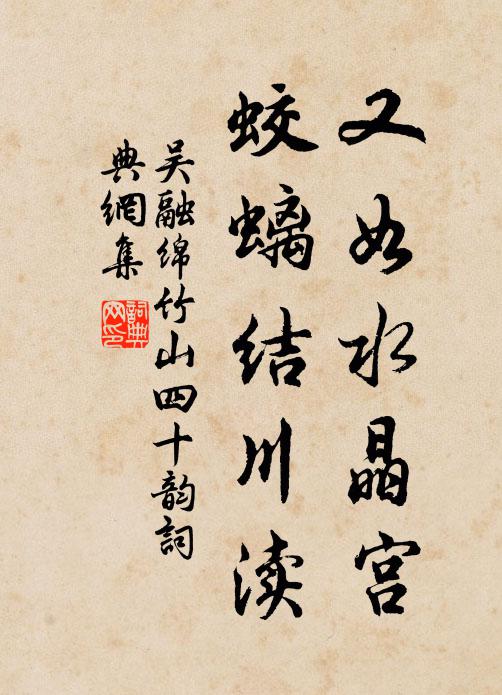 又如水晶宫
蛟螭结川渎
吴融绵竹山四十韵词
典網集
詞典
网印